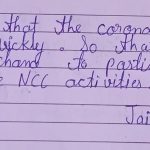 that the corona
quickly. So tha
chand to partic
NCC activities.
Jai